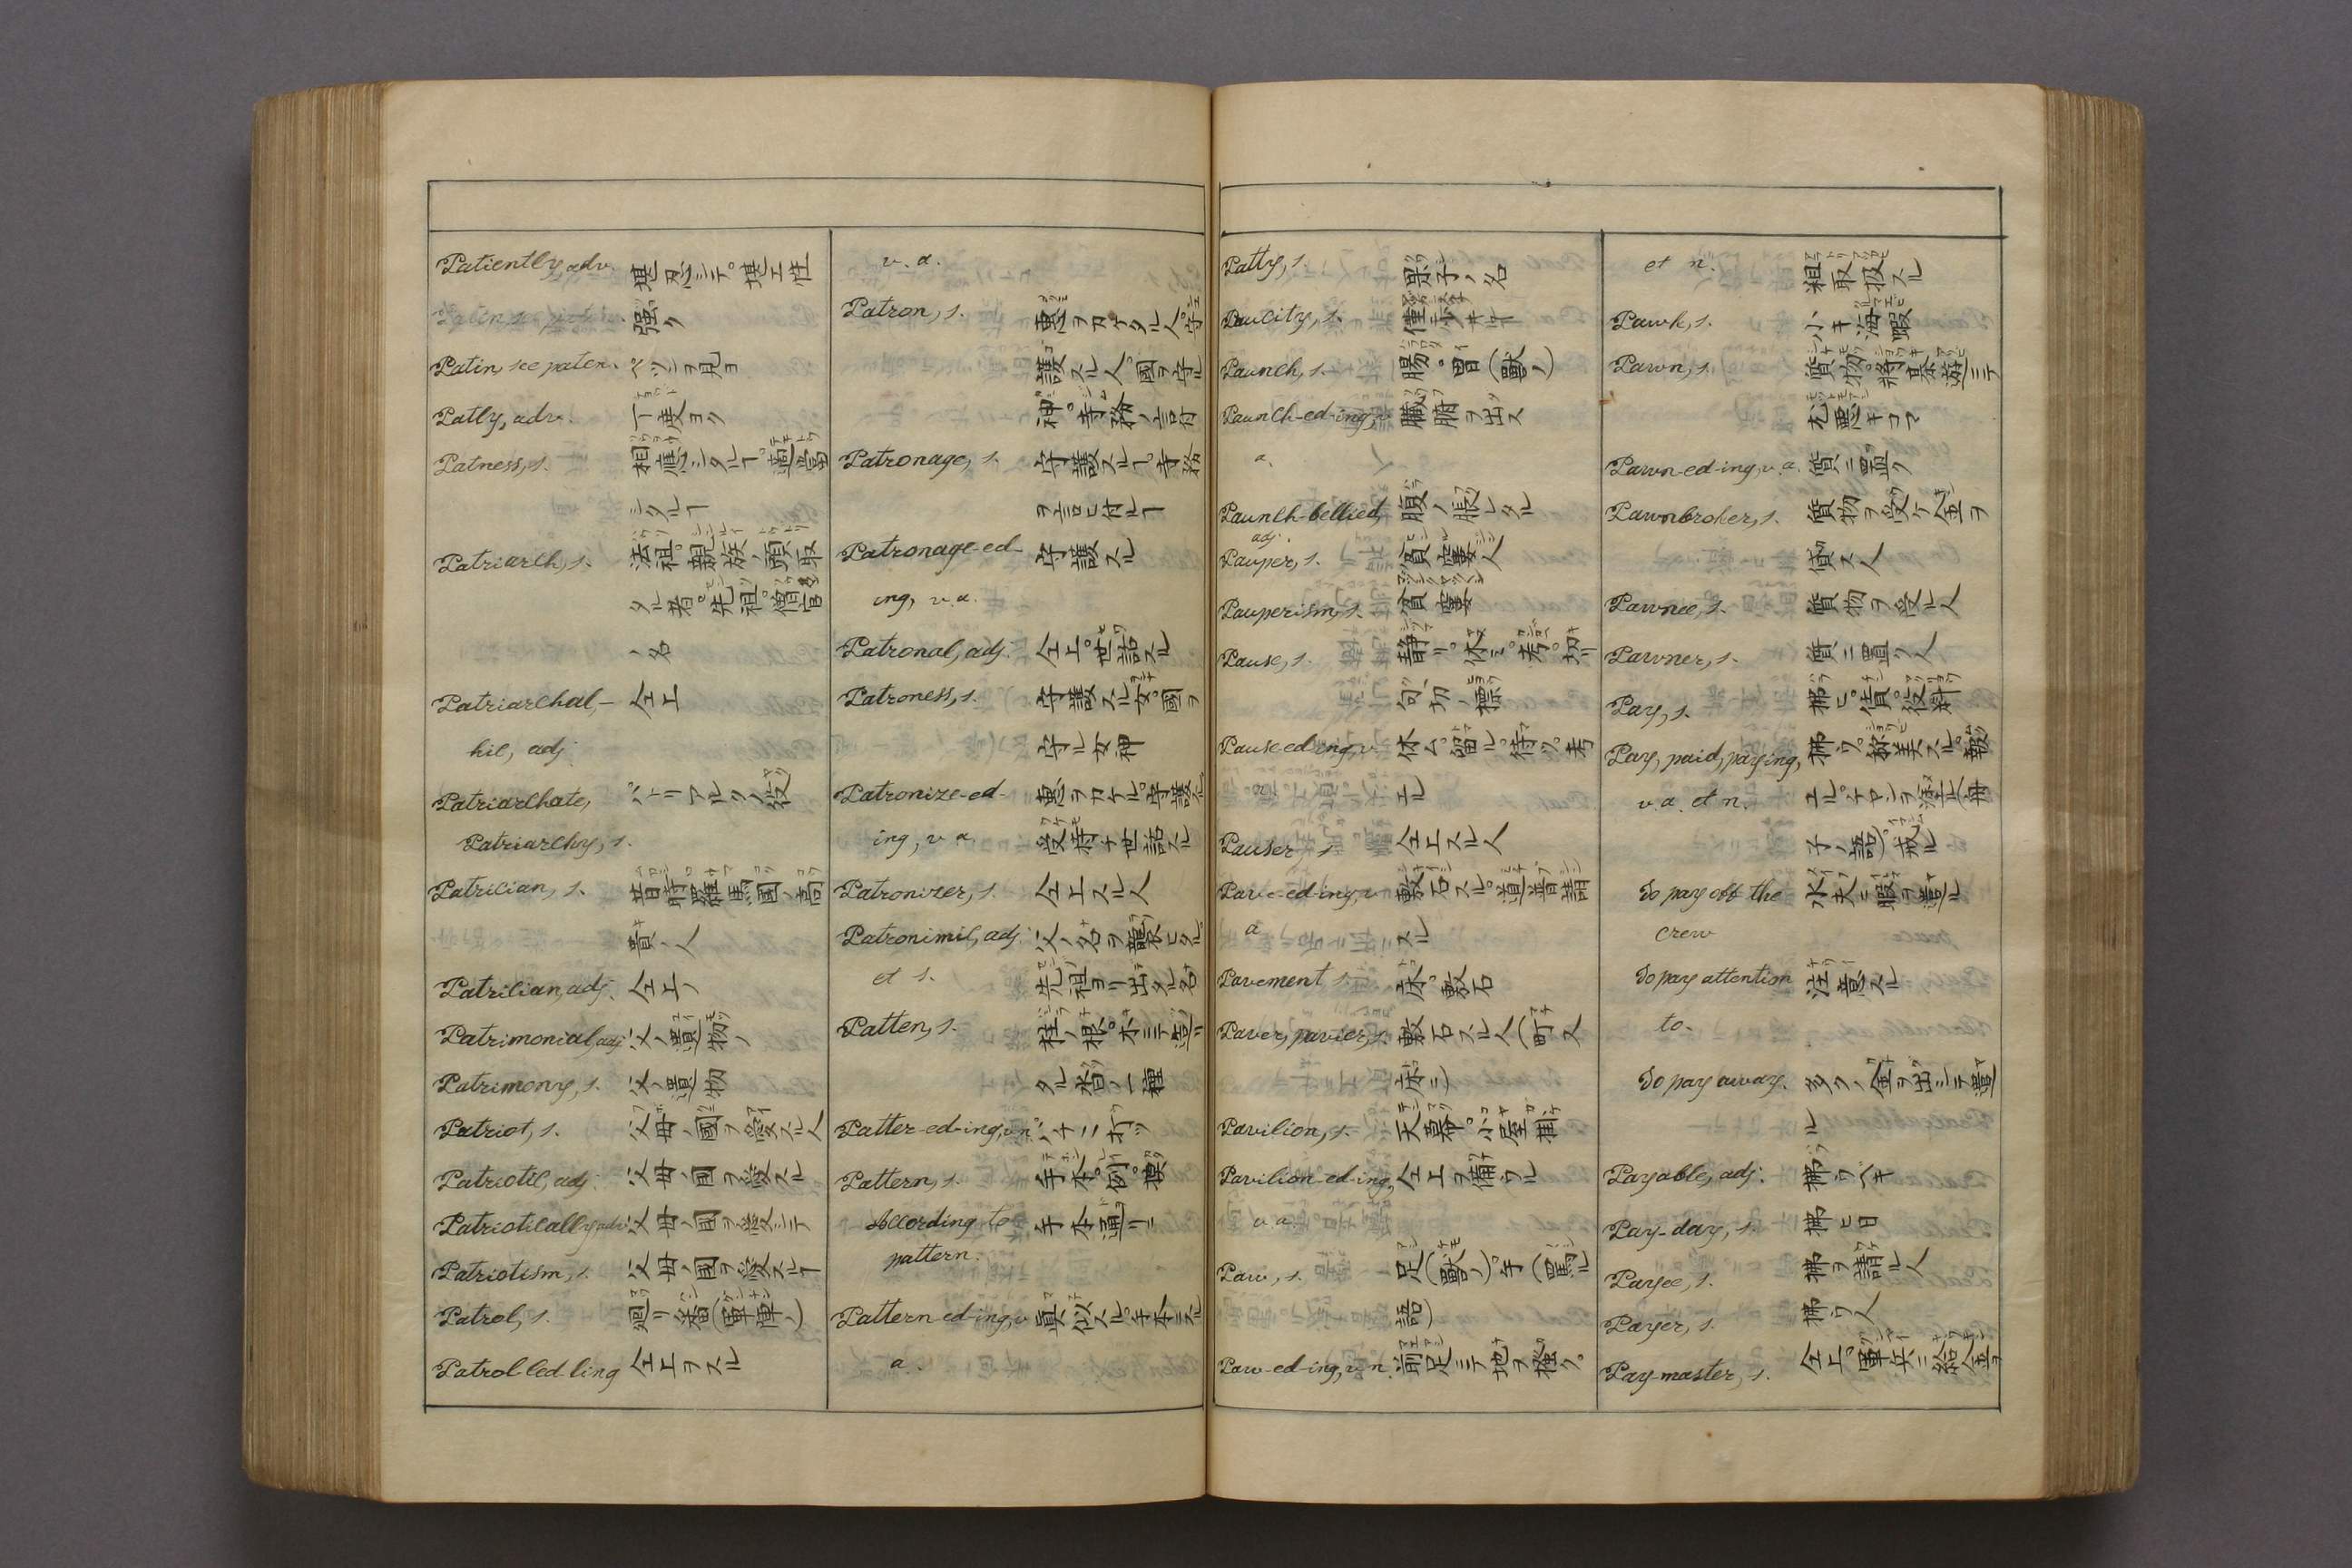 Patiently, adv. 堪忍シテ。堪エ性
強ク
Patin, see paten. ペツンヲ見ヨ
Patly, adv. 丁度ヨク
Patness, s. 相應シタルヿ。適當
シタルヿ
Patriarch, s. 法祖。親族ノ頭取
タル者。先祖。僧官
ノ名
Patriarchal,- 仝上
hic, adj.
Patriarchate, パトリアルクノ役
Patriarchy, s.
Patrician, s. 昔時羅馬國ノ高
貴ノ人
Patrician, adj. 仝上ノ
Patrimonial, adj. 父ノ遺物ノ
Patrimony, s. 父ノ遺物
Patriot, s. 父母ノ國ヲ愛スル人
Patriotic, adj. 父母ノ國ヲ愛スル
Patriotically, adv. 父母ノ國ヲ愛シテ
Patriotism, s. 父母ノ國ヲ愛スルヿ
Patrol, s. 廻リ番(軍陣ノ)
Patrol-led-ling 仝上ヲスル
v. a.
Patron, s. 惠ヲカケタル人。守
護スル人。國ヲ守ル
神。寺務ノ言付
Patronage, s. 守護スルヿ。寺務
ヲ言ヒ付ルヿ
Patronage-ed- 守護スル
ing, v. a.
Patronal, adj. 仝上。世話スル
Patroness, s. 守護スル女。國ヲ
守ル女神
Patronize-ed- 惠ヲカケル。守護スル
ing, v. a. 受持チ世話スル
Patronizer, s. 仝上スル人
Patronimic, adj. 父ノ名ヲ襲ヒタル
et s. 先祖ヨリ出タル名
Patten, s. 柱ノ根。木ニテ造リ
タル沓ノ一種
Patter-ed-ing, v. n. ハタニ打ツ
Pattern, s. 手本。例。模
According to 手本通リニ
pattern.
Pattern-ed-ing, v. 真似スル。手本ニスル
a.
Patty, s. 菓子ノ名
Paucity, s. 僅。少キヿ
Paunch, s. 腸。胃(獸ノ)
Paunch-ed-ing, v. 臓腑ヲ出ス
a.
Paunch-bellied, 腹ノ脹レタル
adj.
Pauper, s. 貧窶ノ人
Pauperism, s. 貧窶
Pause, s. 静リ。休ミ。考。切リ
句切ノ標
Pause-ed-ing, v. 休ム。留ル。待ツ。考
エル
Pauser, s. 仝上スル人
Pave-ed-ing, v. 敷石スル。道普請
a. スル
Pavement s. 床。敷石
Paver, pavier, s. 敷石スル人(町又
床ニ)
Pavilion, s. 天幕。小屋掛ケ
Pavilion-ed-ing, 仝上ヲ備ヘル
v. a.
Paw, s. 足(獸ノ)。手(罵ル
語)
Paw-ed-ing, v. n. 前足ニテ地ヲ掻ク。
et n. 粗取扱スル
Pawk, s. 小キ海蝦
Pawn, s. 質物。將棊遊ニテ
尤悪キコマ
Pawn-ed-ing, v. a. 質ニ置ク
Pawnbroker, s. 質物ヲ受ケ金ヲ
貸ス人
Pawnee, s. 質物ヲ受ル人
Pawner, s. 質ニ置ク人
Pay, s. 拂ヒ。償。役料
Pay, paid, paying, 拂ウ。褒美スル。報
v. a. et n. エル。チヤンヲ塗ル(舟
子ノ語)。戒ル
To pay off the 水夫ニ暇ヲ遣ル
crew
To pay attention 注意スル
to.
To pay away. 多クノ金ヲ出シテ遣
ル
Payable, adj. 拂ウベキ
Pay-day, s. 拂ヒ日
Payee, s. 拂ヲ請ル人
Payer, s. 拂ウ人
Pay-master, s. 仝上。軍兵ニ給金ヲ